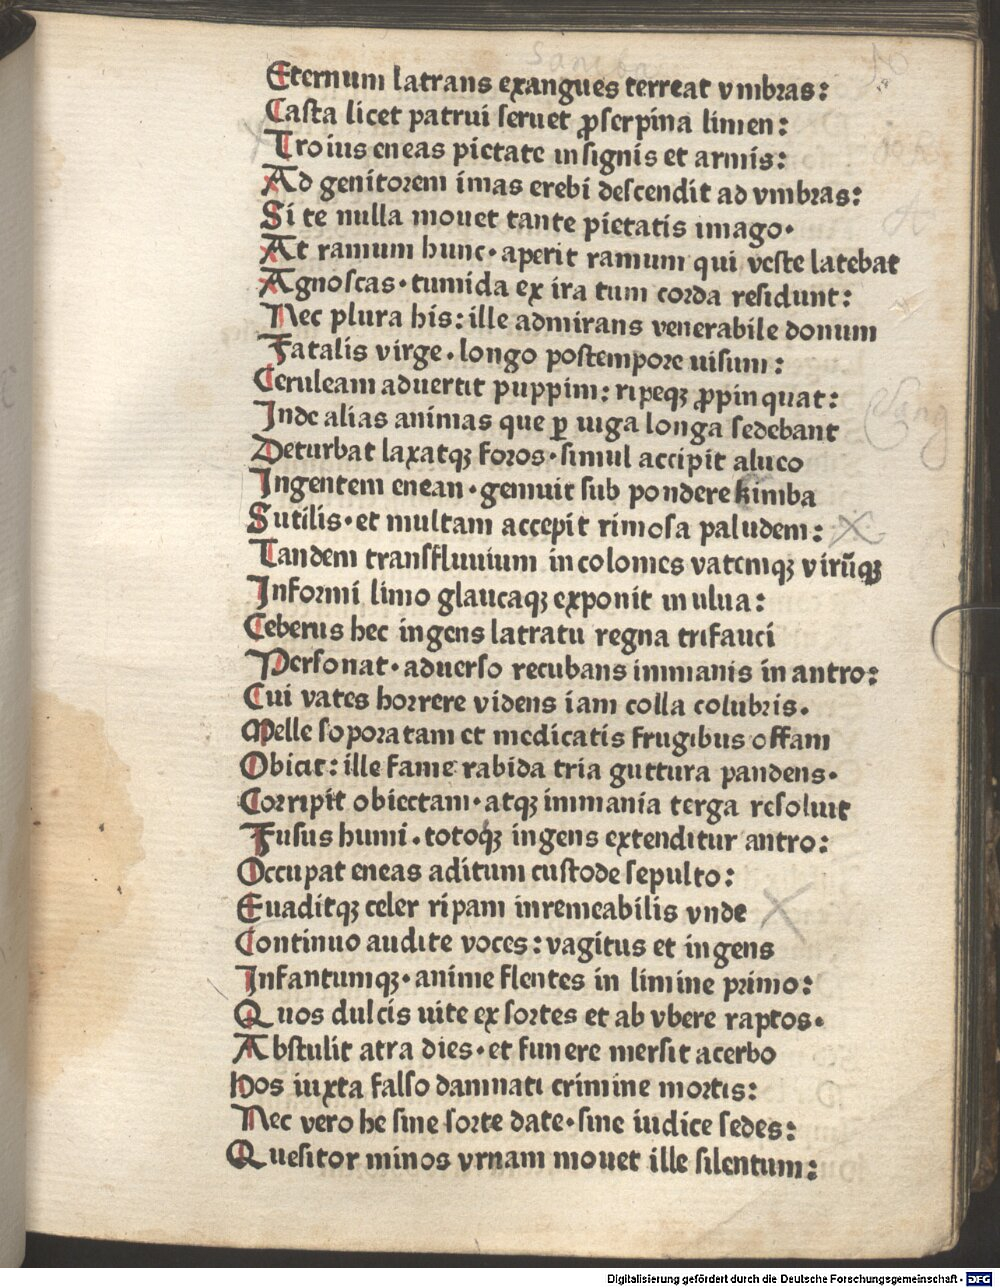 Eternum latrans exangues terreat vmbras:
Casta licet patrui seruet ꝓserpina limen:
Troius eneas pietate insignis et armis:
Ad genitorem imas erebi descendit ad vmbras:
Si te nulla mouet tante pietatis imago·
At ramum hunc· aperit ramum qui veste latebat
Agnoscas· tumida ex ira tum corda residunt:
Nec plura his: ille admirans venerabile donum
Fatalis virge· longo postempore uisum:
Ceruleam aduertit puppim: ripeqꝫ ꝓpinquat:
Inde alias animas que ꝑ iuga longa sedebant
Deturbat laxatqꝫ foros· simul accipit alueo
Ingentem enean· gemuit sub pondere kimba
Sutilis· et multam accepit rimosa paludem:
Tandem transfluuium incolomes vatemqꝫ virūqꝫ
Informi limo glaucaqꝫ exponit in ulua:
Ceberus hec ingens latratu regna trifauci
Personat· aduerso recubans immanis in antro:
Cui vates horrere videns iam colla colubris·
Melle soporatam et medicatis frugibus offam
Obicit: ille fame rabida tria guttura pandens·
Corripit obiectam· atqꝫ immania terga resoluit
Fusus humi· totoqꝫ ingens extenditur antro:
Occupat eneas aditum custode sepulto:
Euaditqꝫ celer ripam inremeabilis vnde
Continuo audite voces: vagitus et ingens
Infantumqꝫ· anime flentes in limine primo:
Quos dulcis uite exsortes et ab vbere raptos·
Abstulit atra dies· et funere mersit acerbo
Hos iuxta falso damnati crimine mortis:
Nec vero he sine sorte date· sine iudice sedes:
Quesitor minos vrnam mouet ille silentum:
Digitalisierung gefördert durch die Deutsche Forschungsgemeinschaft · DFG